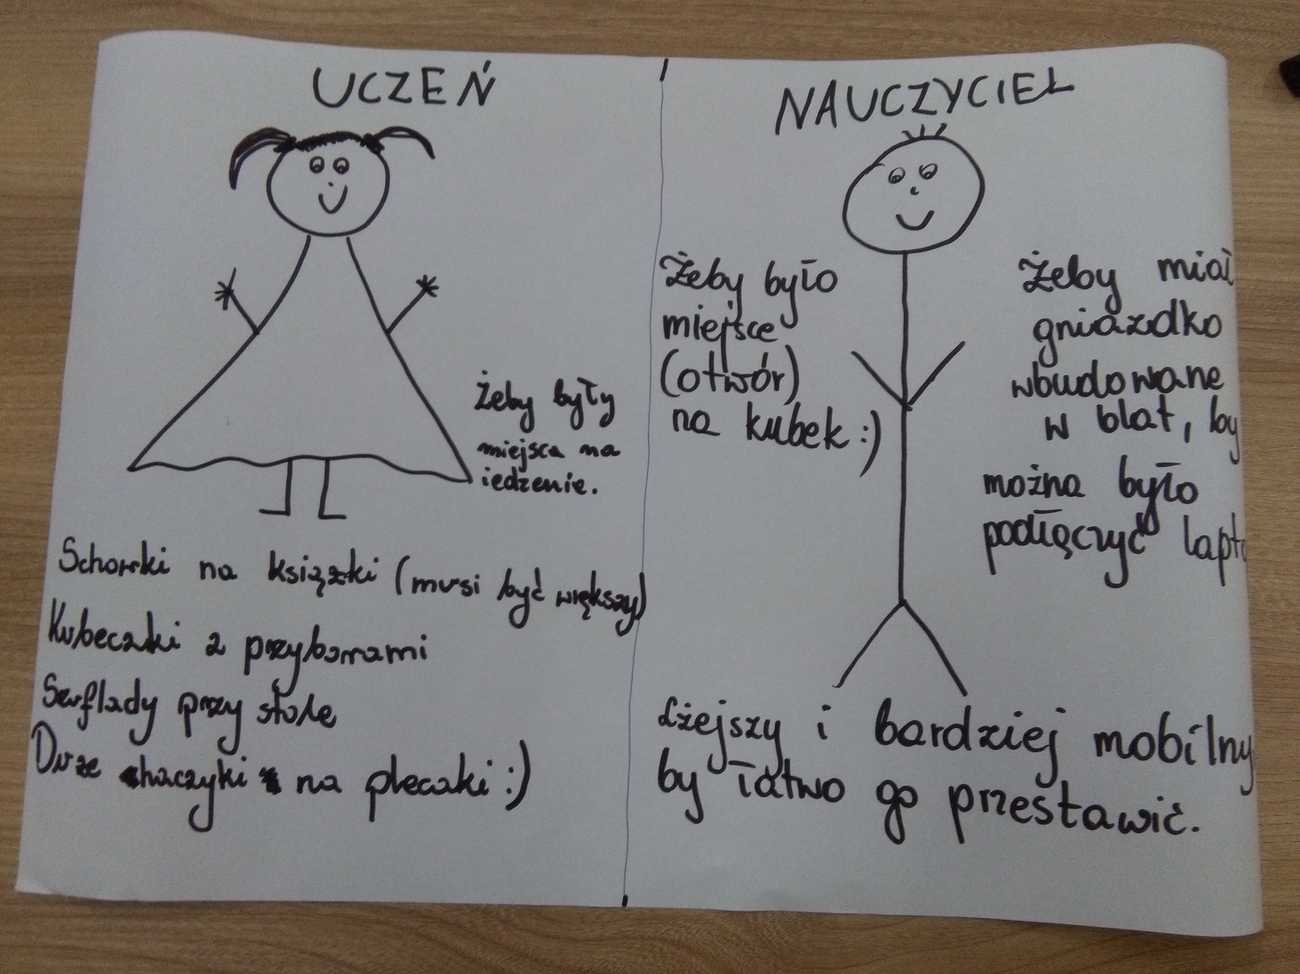 UCZEŃ
Żeby były
miejsca na
iedzenie.
Schowki na książki (musi być większy)
Kubeczki z przyborami
Szuflady przy stole
Duże haczyki na plecaki :)
NAUCZYCIEL
Żeby było
miejsce
(otwór)
na kubek :)
Żeby miał
gniazdko
wbudowane
w blat, by
można było
podłączyć lapto
Lżejszy i bardziej mobilny
by łatwo go przestawić.